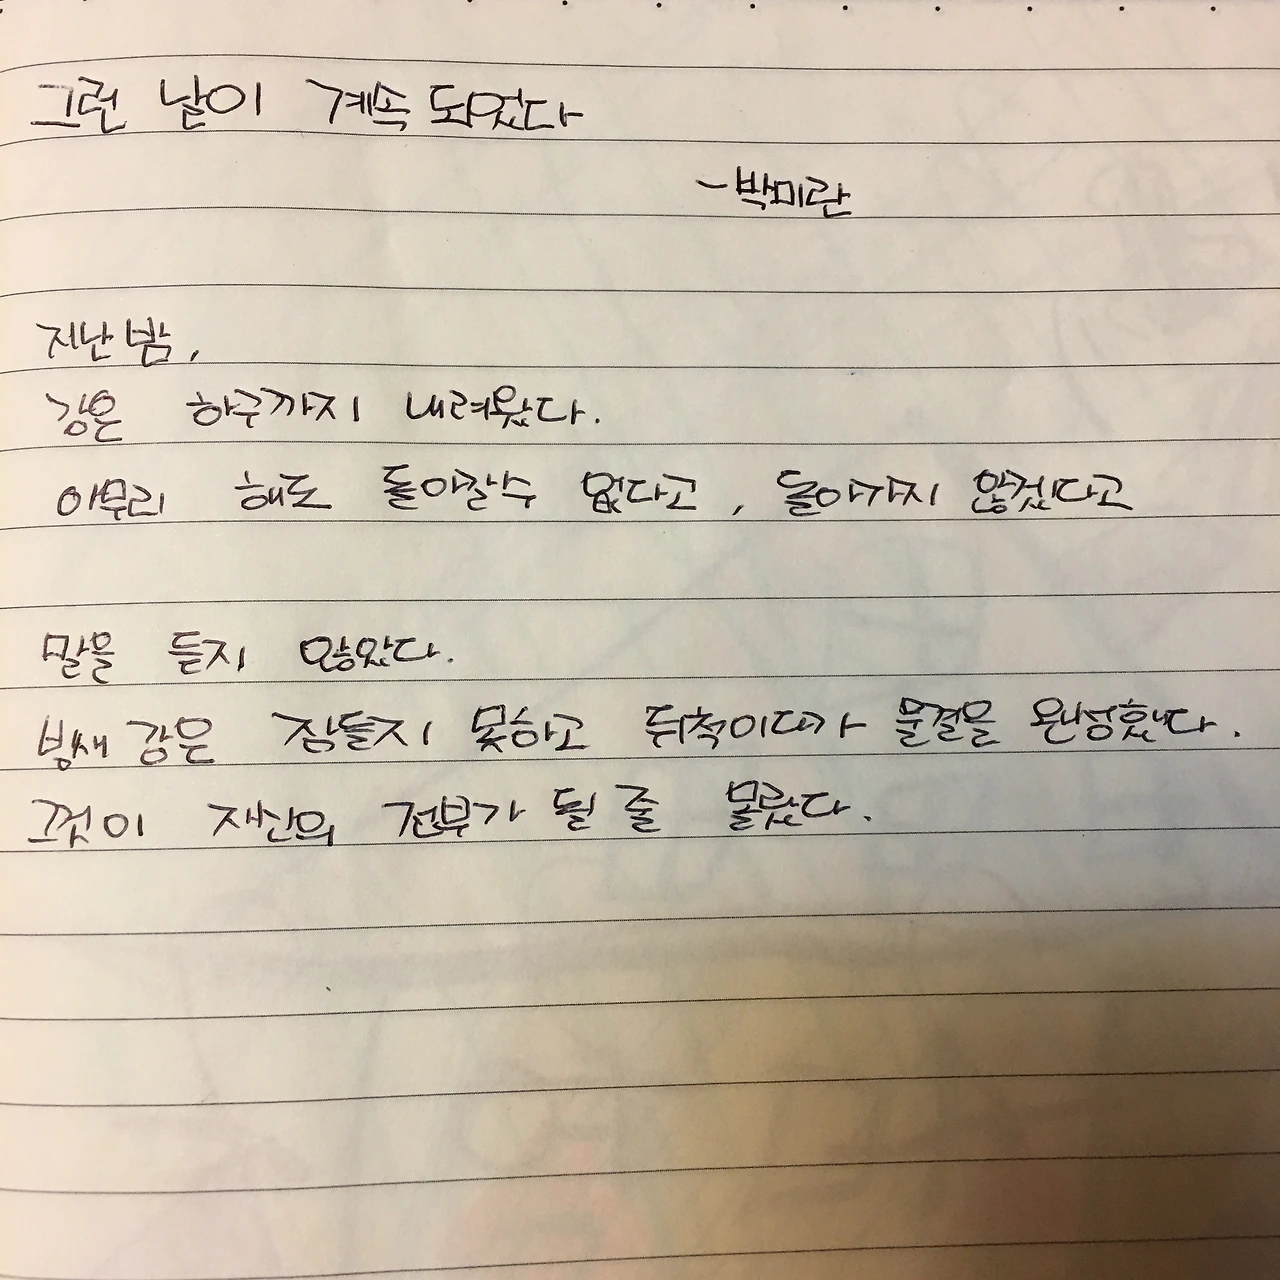 그런 날이 계속 되었다
-박미란
지난 밤,
강은 하구까지 내려왔다.
아무리 해도 돌아갈수 없다고, 돌아가지 않겠다고
말을 듣지 않았다.
밤새 강은 잠들지 못하고 뒤척이다가 물결을 완성했다.
그것이 자신의 전부가 될 줄 몰랐다.